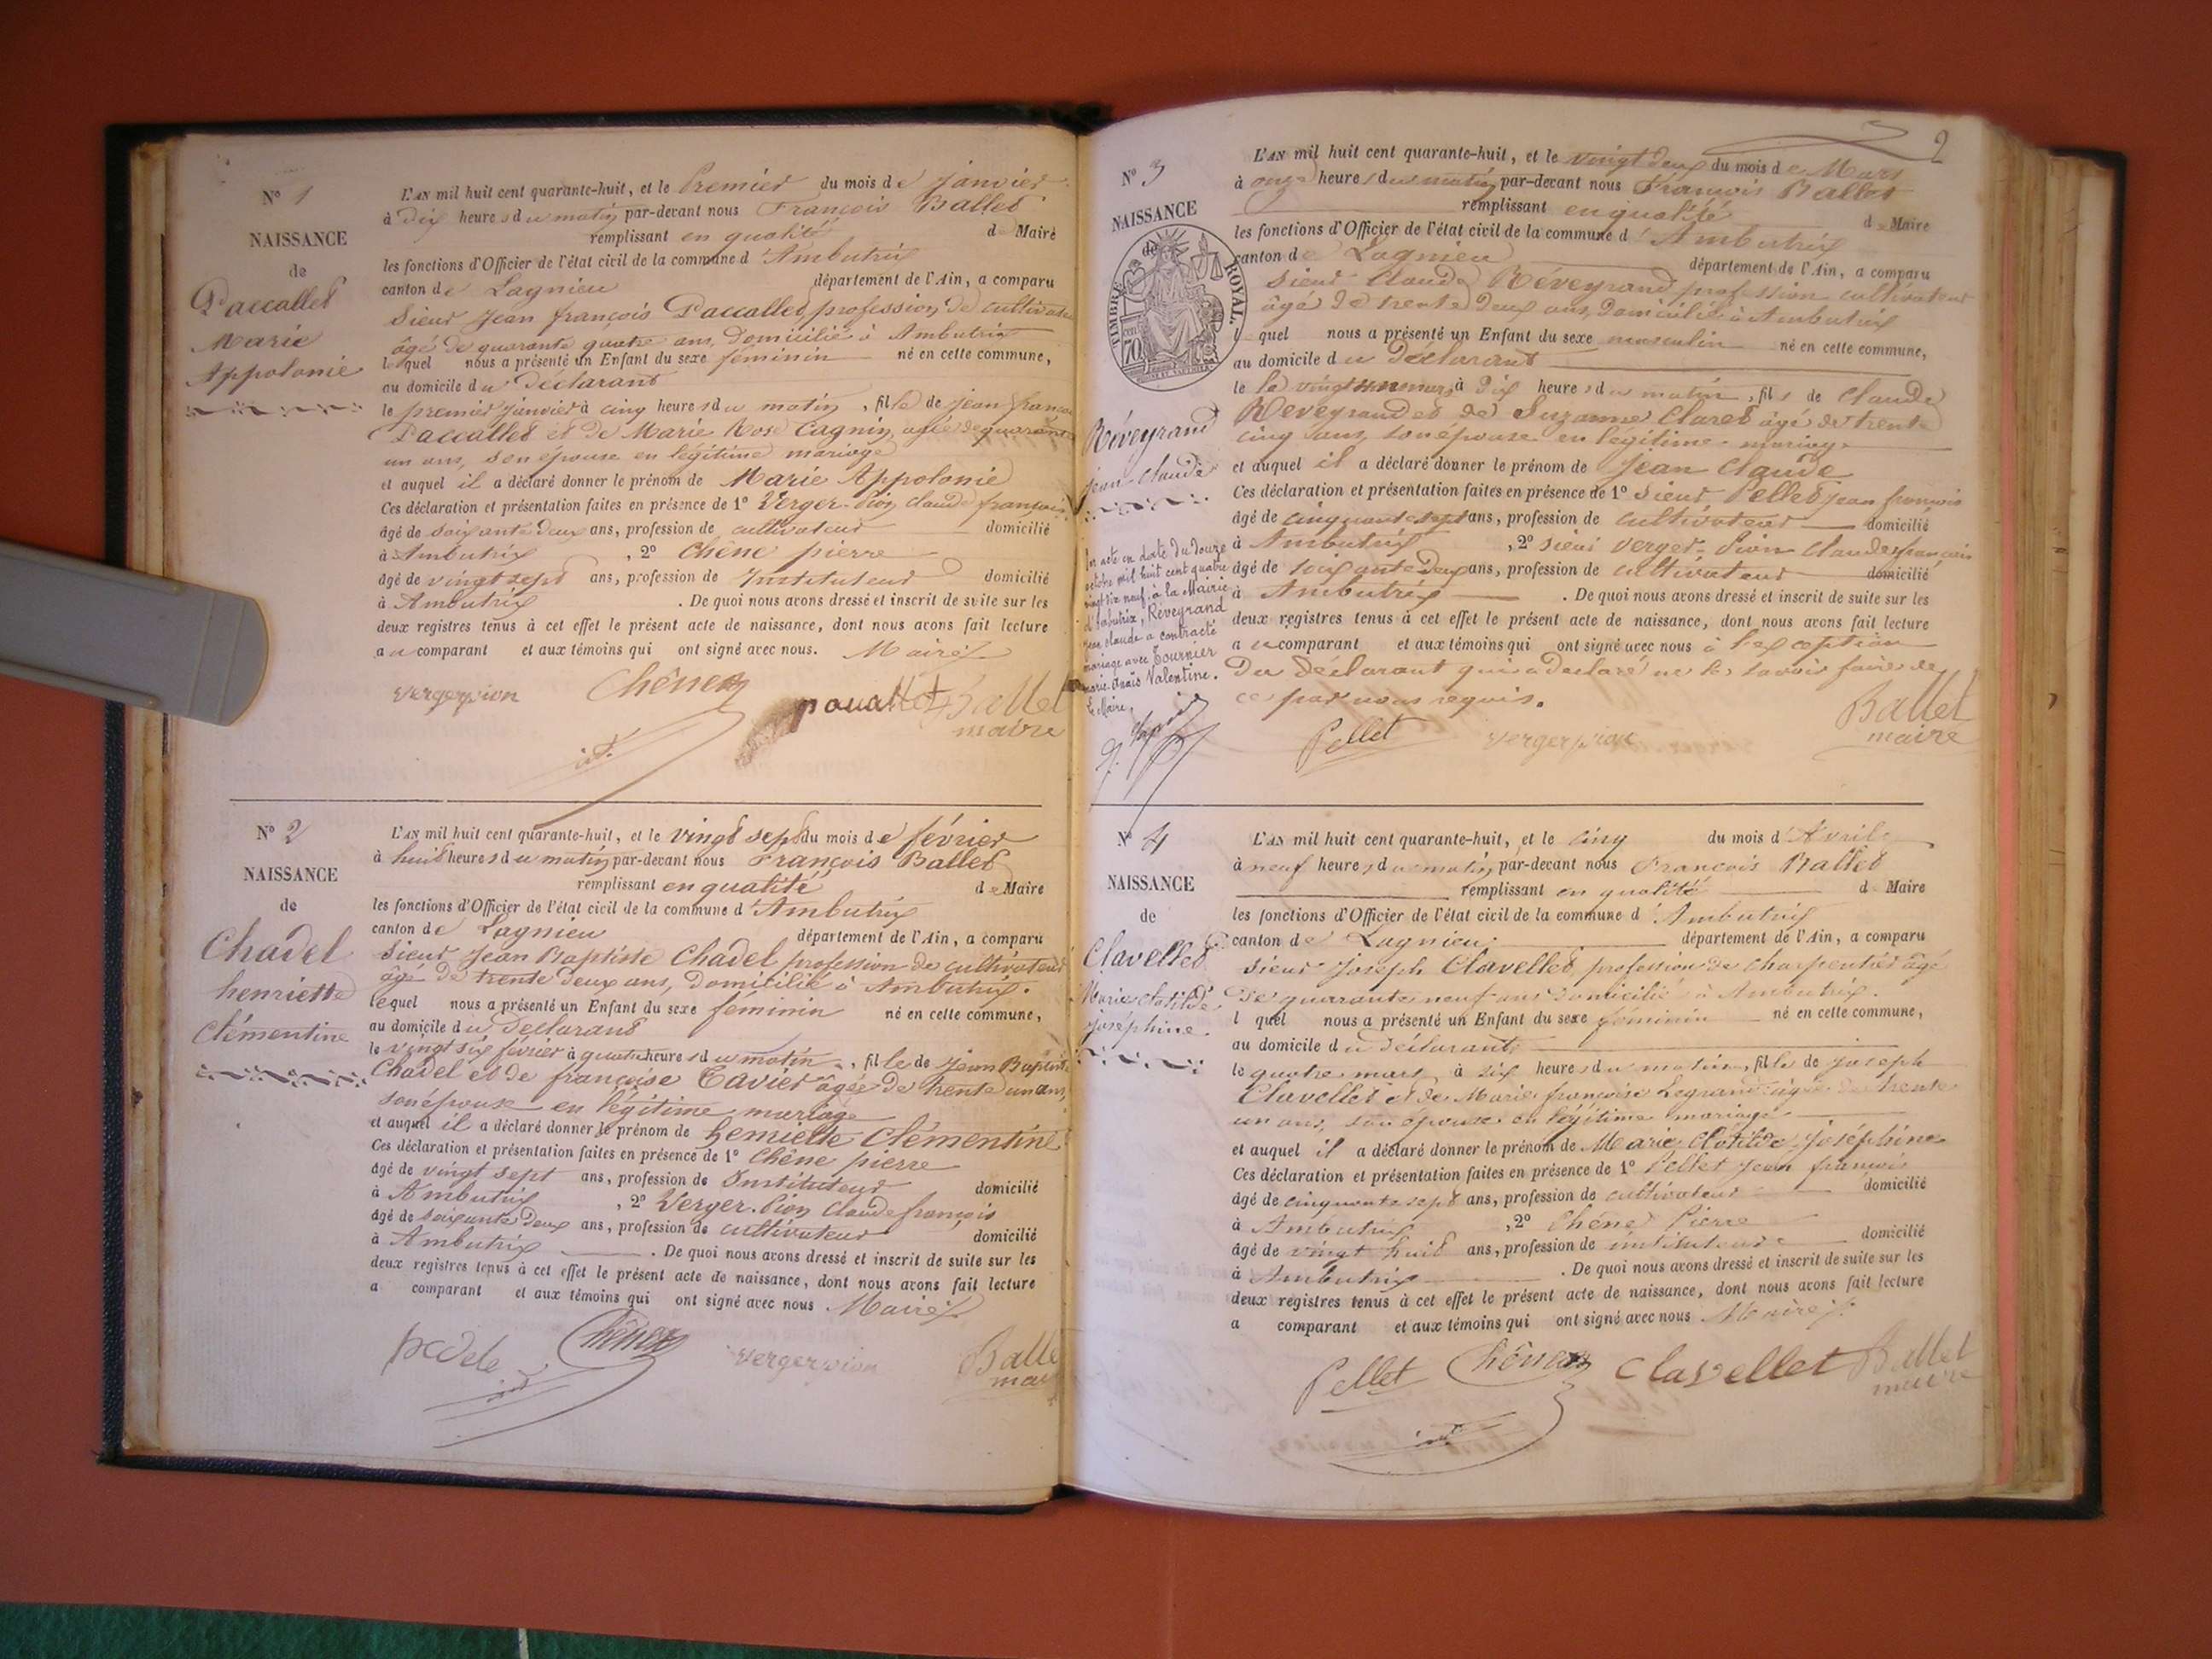 N° 1
NAISSANCE
de
Paccallet
Marie
Appolonie
L'AN mil huit cent quarante-huit, et le Premier du mois de janvier
à Dix heures du matin par-devant nous François Ballet
remplissant en qualité de Maire
les fonctions d'Officier de l'état civil de la commune d'Ambutrix
canton de Lagnieu département de l'Ain, a comparu
Sieur Jean françois Paccallet, profession de cultivateur
âgé de quarante quatre ans, Domicilié à Ambutrix
lequel nous a présenté un Enfant du sexe féminin né en cette commune,
au domicile du Déclarant
le premier janvier à cinq heures du matin, fille de jean françois
Paccallet et de Marie Rose Cagnin, agée de quarante
un ans, son épouse en légitime mariage
et auquel il a déclaré donner le prénom de Marie Appolonie
Ces déclaration et présentation faites en présence de 1° Verger-Pion, claude françois
âgé de soixante deux ans, profession de cultivateur domicilié
à Ambutrix, 2° Chêne pierre
âgé de vingt sept ans, profession de Instituteur domicilié
à Ambutrix. De quoi nous avons dressé et inscrit de suite sur les
deux registres tenus à cet effet le présent acte de naissance, dont nous avons fait lecture
au comparant et aux témoins qui ont signé avec nous. Maire
vergerpion Chêne Ballet
maire
N° 2
NAISSANCE
de
Chadel
henriette
Clémentine
L'AN mil huit cent quarante-huit, et le vingt sept du mois de février
à huit heures du matin par-devant nous François Ballet
remplissant en qualité de Maire
les fonctions d'Officier de l'état civil de la commune d'Ambutrix
canton de Lagnieu département de l'Ain, a comparu
Sieur Jean Baptiste Chadel profession de cultivateur
âgé de trente deux ans, Domicilié à Ambutrix.
lequel nous a présenté un Enfant du sexe féminin né en cette commune,
au domicile du Déclarant
le vingt six février à quatre heures du matin, fille de Jean Baptiste
Chadel et de françoise Tavier âgée de trente un ans,
son épouse en légitime mariage
et auquel il a déclaré donner le prénom de henriette Clémentine
Ces déclaration et présentation faites en présence de 1° Chêne pierre
âgé de vingt sept ans, profession de Instituteur domicilié
à Ambutrix, 2° Verger-Pion Claude françois
âgé de soixante deux ans, profession de cultivateur domicilié
à Ambutrix. De quoi nous avons dressé et inscrit de suite sur les
deux registres tenus à cet effet le présent acte de naissance, dont nous avons fait lecture
a comparant et aux témoins qui ont signé avec nous. Maire
Chêne vergerpion Ballet
maire
2
N° 3
NAISSANCE
de
TIMBRE ROYAL
70
Réveyrand
jean-claude
L'AN mil huit cent quarante-huit, et le vingt deux du mois de Mars
à onze heures du matin par-devant nous François Ballet
remplissant en qualité de Maire
les fonctions d'Officier de l'état civil de la commune d'Ambutrix
canton de Lagnieu département de l'Ain, a comparu
Sieur Claude Réveyrand profession cultivateur
âgé de trente deux ans, Domicilié à Ambutrix
l quel nous a présenté un Enfant du sexe masculin né en cette commune,
au domicile du Déclarant
le à Dix heures du matin, fils de Claude
Reveyrand et de Suzanne Claret âgé de trente
cinq ans, son épouse en légitime mariage
et auquel il a déclaré donner le prénom de Jean Claude
Ces déclaration et présentation faites en présence de 1° Sieur Pellet jean françois
âgé de cinquante sept ans, profession de cultivateur domicilié
à Ambutrix, 2° sieur verger-Pion Claude françois
âgé de soixante deux ans, profession de cultivateur domicilié
à Ambutrix. De quoi nous avons dressé et inscrit de suite sur les
deux registres tenus à cet effet le présent acte de naissance, dont nous avons fait lecture
au comparant et aux témoins qui ont signé avec nous à l'exception
Du Déclarant qui a Déclaré ne le savoir faire de
ce par nous requis.
Par acte en date du douze
octobre mil huit cent quatre
vingt dix neuf, à la Mairie
d'Ambutrix, Réveyrand
jean claude a contracté
mariage avec Tournier
marie-Anaïs Valentine.
Le Maire,
Pellet vergerpion Ballet
maire
N° 4
NAISSANCE
de
Clavellet
Marie Clotilde
joséphine
L'AN mil huit cent quarante-huit, et le cinq du mois d'Avril
à neuf heures du matin par-devant nous François Ballet
remplissant en qualité de Maire
les fonctions d'Officier de l'état civil de la commune d'Ambutrix
canton de Lagnieu département de l'Ain, a comparu
Sieur Joseph Clavellet, profession de charpentier âgé
de quarante neuf ans Domicilié à Ambutrix.
l quel nous a présenté un Enfant du sexe féminin né en cette commune,
au domicile du Déclarant
le quatre mars à six heures du matin, fille de Joseph
Clavellet et de Marie françoise Legrand âgée de trente
un ans, son épouse en légitime mariage
et auquel il a déclaré donner le prénom de Marie Clotilde Joséphine
Ces déclaration et présentation faites en présence de 1° Pellet Jean françois
âgé de cinquante sept ans, profession de cultivateur domicilié
à Ambutrix, 2° Chêne Pierre
âgé de vingt huit ans, profession de instituteur domicilié
à Ambutrix. De quoi nous avons dressé et inscrit de suite sur les
deux registres tenus à cet effet le présent acte de naissance, dont nous avons fait lecture
a comparant et aux témoins qui ont signé avec nous. Maire
Pellet Chêne Clavellet Ballet
maire